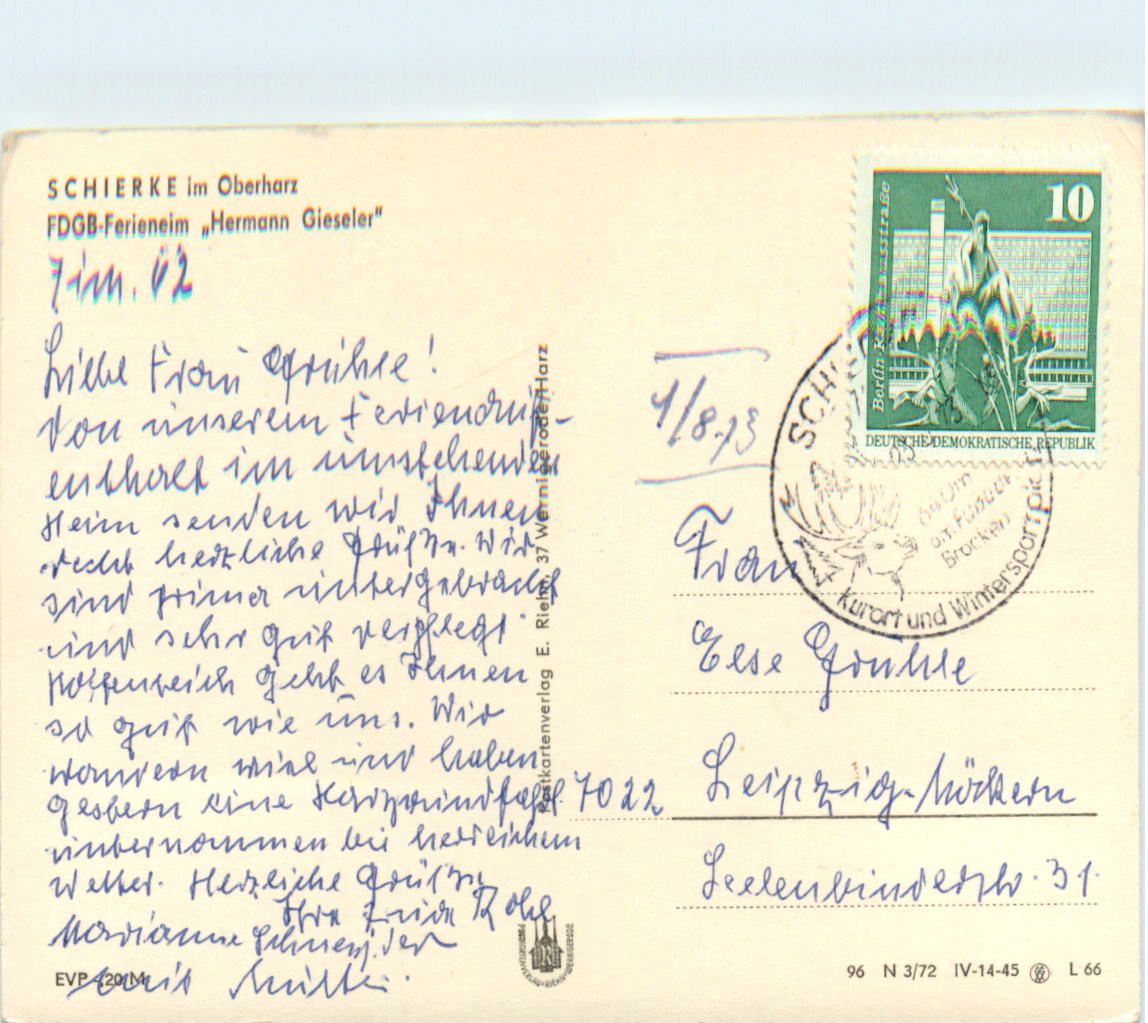 SCHIERKE im Oberharz
FDGB-Ferieneim „Hermann Gieseler"
Zim. 62
Liebe Frau Grühle!
Von unserem Ferienauf-
enthalt im umstehenden
Heim senden wir Ihnen
recht herzliche Grüße. Wir
sind prima untergebracht
und sehr gut verpflegt.
Hoffentlich geht es Ihnen
so gut wie uns. Wir
wandern viel und haben
gestern eine Harzrundfahrt
unternommen bei herrlichem
Wetter. Herzliche Grüße
Ihre
Marianne
mit Mutter.
EVP -,20 M
Postkartenverlag E. Riehn, 37 Wernigerode/Harz
POSTKARTENVERLAG RIEHN WERNIGERODE
10
Berlin
DEUTSCHE DEMOKRATISCHE REPUBLIK
SCHIERKE
640 üm
am Fuße der
Brocken
Kurort und Wintersportplatz
1/8.73
Frau
Else Grühle
7022 Leipzig-Möckern
Seelenbinderstr. 31
96 N 3/72 IV-14-45 L 66